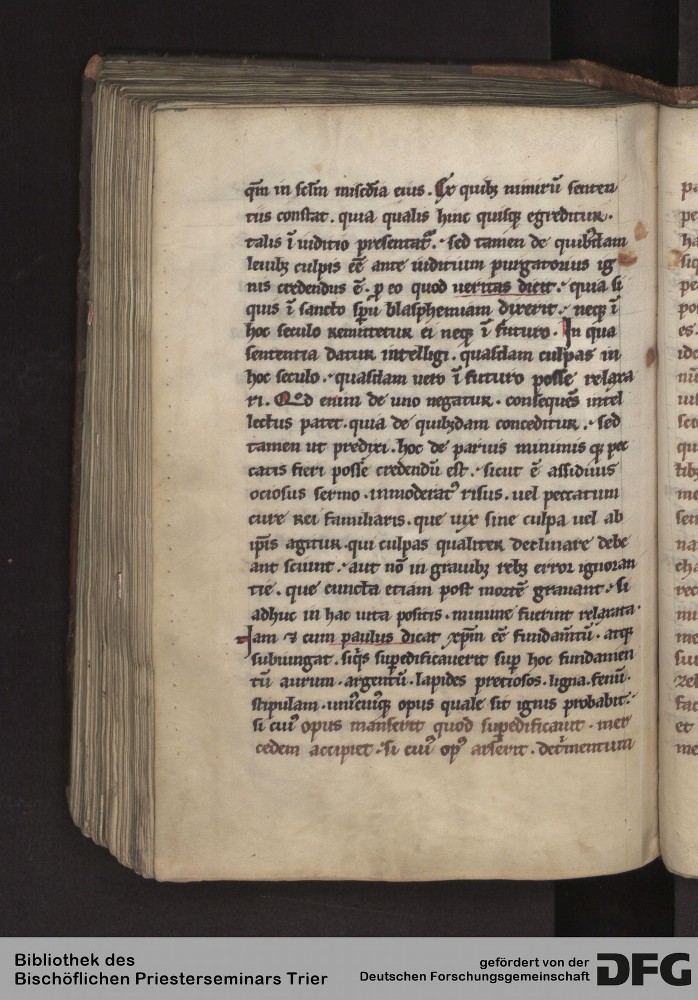 qm̄ in sclm̄ misc̄dia eius. Ex quibꝫ nimirū senten
tiis constat. quia qualis hinc quisqꝫ egreditur.
talis ī iuditio presentat᷑. sed tamen de quibusdam
leuibꝫ culpis eē ante iuditium purgatorius ig
nis credendus ē. ꝑ eo quod ueritas dicit. quia si
quis ī sancto spū blasphemiam dixerit. neqꝫ ī
hoc seculo remittetur ei neqꝫ ī futuro. In qua
sententia datur intelligi. quasdam culpas in
hoc seculo. quasdam uero ī futuro posse relaxa
ri. Qd enim de uno negatur. consequēs intel
lectus patet. quia de quibꝫdam conceditur. sed
tamen ut predixi. hoc de paruis minimis qꝫ pec
catis fieri posse credendū est. sicut ē assiduus
ociosus sermo. inmoderatꝰ risus. uel peccatum
cure rei familiaris. que uix sine culpa uel ab
ip̄is agitur. qui culpas qualiter declinare debe
ant sciunt. aut nō in grauibꝫ rebꝫ error ignoran
tie. que cuncta etiam post mortē grauant. si
adhuc in hac uita positis. minime fuerint relaxata.
Iam ⁊ cum paulus dicat xp̄m eē fundam̄tū. atqꝫ
subiungat. siq̄s sup̄edificauerit suꝑ hoc fundamen
tū aurum. argentū. lapides preciosos. ligna. fenū.
stipulam. uniꝰcuiꝰqꝫ opus quale sit ignis probabit.
si cuiꝰ opus manserit quod sup̄edificauit. mer
cedem accipiet. si cuiꝰ opꝰ arserit. det̄mentum
Bibliothek des
Bischöflichen Priesterseminars Trier
gefördert von der
Deutschen Forschungsgemeinschaft
DFG